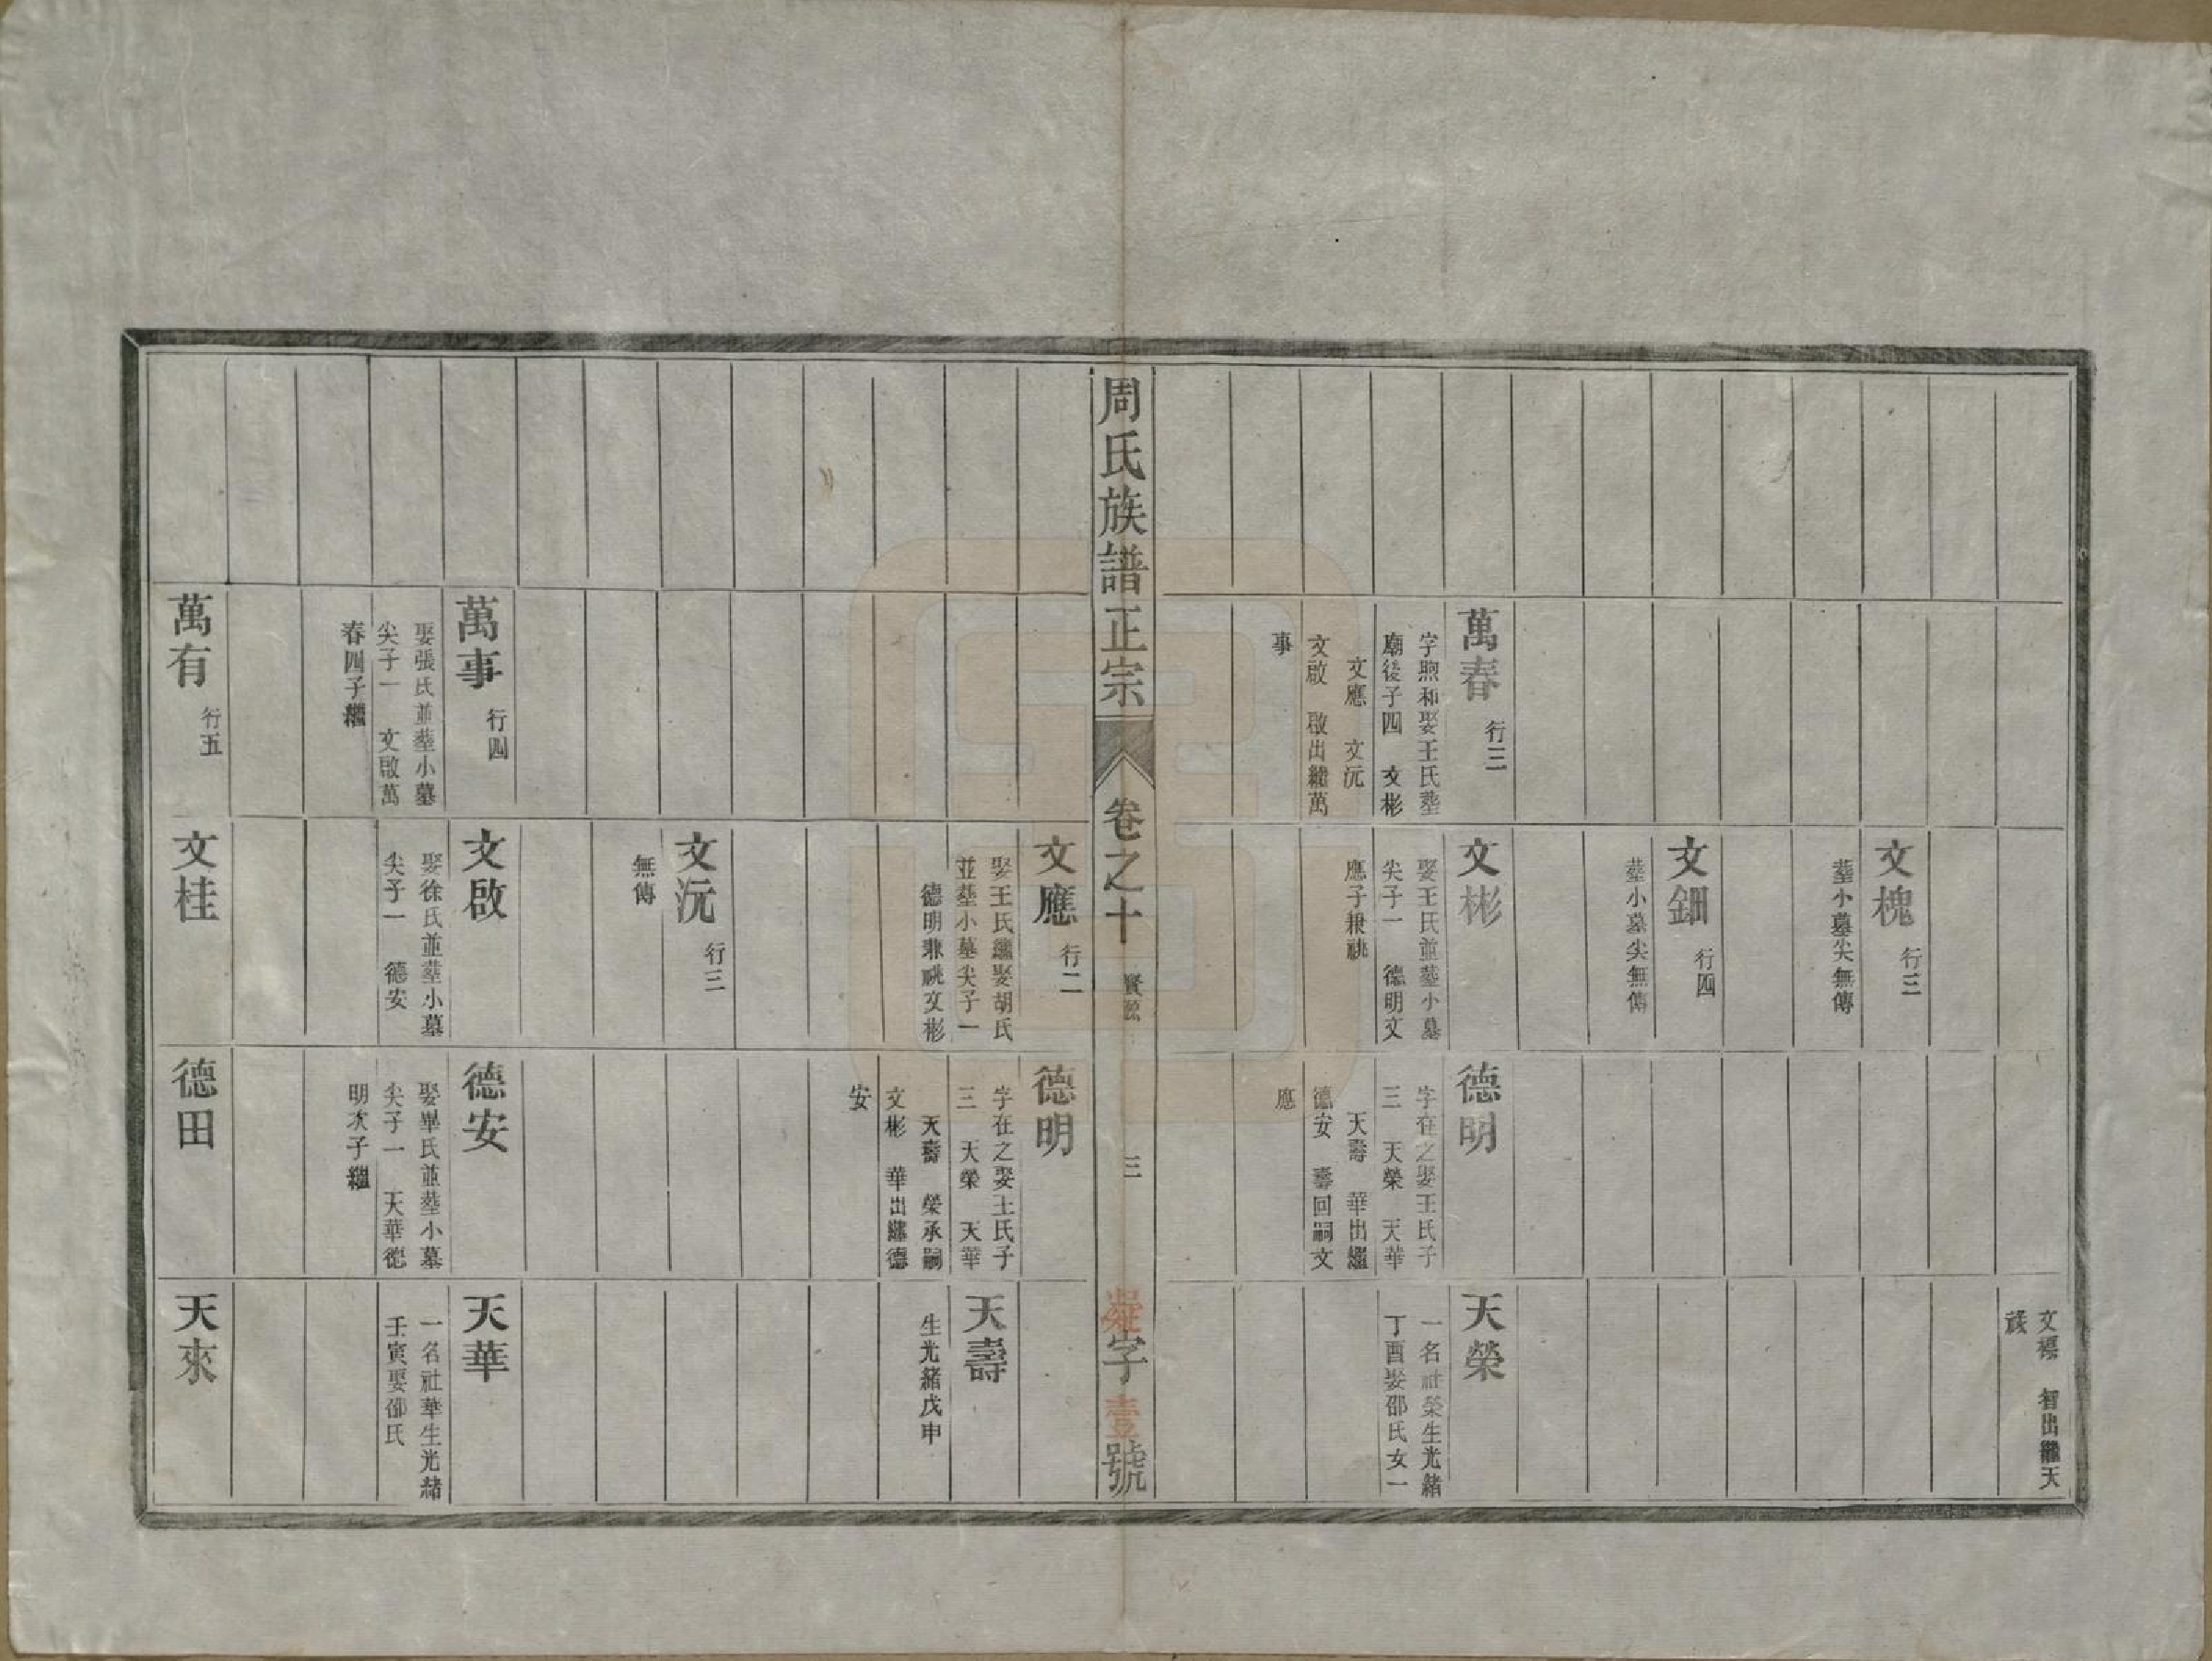 文標　智出繼天
文槐 行三
塟小墓尖無傳
文鈿 行四
塟小墓尖無傳
萬春 行三
字煦和娶王氏塟
廟後子四　文彬
文應　文沅
文啟　啟出繼萬
事
文彬
娶王氏並塟小墓
尖子一　德明文
應子兼祧
德明
字在之娶王氏子
三　天榮　天華
天壽　華出繼
德安　壽回嗣文
應
天榮
一名社榮生光緒
丁酉娶邵氏女一
周氏族譜正宗
卷之十
三
字壹號
文應 行二
娶王氏繼娶胡氏
並塟小墓尖子一
德明兼祧文彬
德明
字在之娶王氏子
三　天榮　天華
天壽　榮承嗣
文彬　華出繼德
安
天壽
生光緒戊申
文沅 行三
無傳
萬事 行四
娶張氏並塟小墓
尖子一　文啟萬
春四子繼
文啟
娶徐氏並塟小墓
尖子一　德安
德安
娶畢氏並塟小墓
尖子一　天華德
明次子繼
天華
一名社華生光緒
壬寅娶邵氏
萬有 行五
文桂
德田
天來